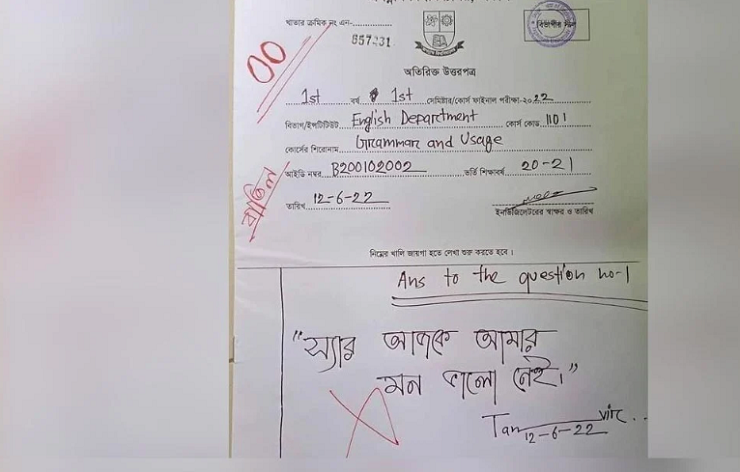 খাতার ক্রমিক নং এন-
857231
বিভাগীয় সিল
00
অতিরিক্ত উত্তরপত্র
1st বর্ষ 1st সেমিষ্টার/কোর্স ফাইনাল পরীক্ষা-২০22
বিভাগ/ইন্সটিটিউট English Department কোর্স কোড 1101
কোর্সের শিরোনাম Grammar and Usage
আইডি নম্বর B200102002 ভর্তি শিক্ষাবর্ষ 20-21
বাতিল
তারিখ 12-6-22
ইনভিজিলেটরের স্বাক্ষর ও তারিখ
নিম্নের খালি জায়গা হতে লেখা শুরু করতে হবে।
Ans to the question no-1
"স্যার আজকে আমার
মন ভালো নেই।"
Tanvir
12-6-22